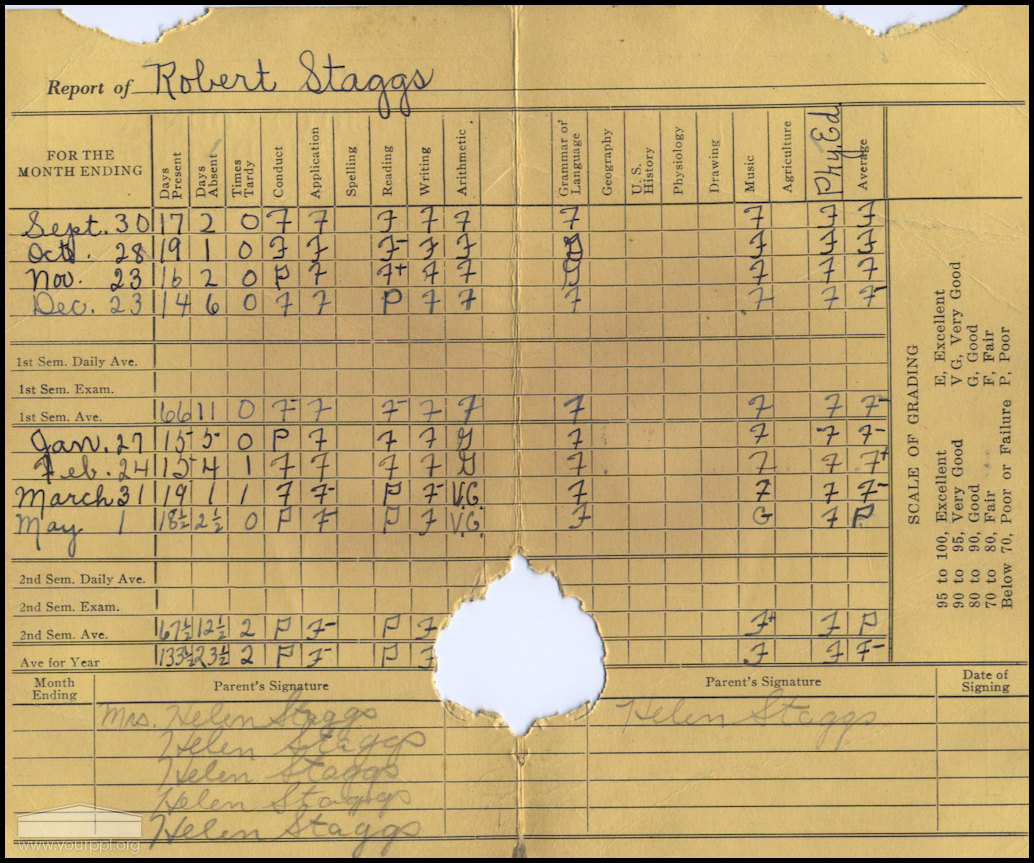 Report of Robert Staggs
FOR THE MONTH ENDING Days Present Days Absent Times Tardy Conduct Application Spelling Reading Writing Arithmetic Grammar or Language Geography U. S. History Physiology Drawing Music Agriculture Phy. Ed Average
Sept. 30 17 2 0 F F F F F F F F F
Oct. 28 19 1 0 F F F- F F F F F
Nov. 23 16 2 0 P F F+ F F F F F
Dec. 23 14 6 0 F F P F F F F F F-
1st Sem. Daily Ave.
1st Sem. Exam.
1st Sem. Ave. 66 11 0 F- F F- F F F F F F-
Jan. 27 15 5 0 P F F F G F F F F-
Feb. 24 15 4 1 F F F F G F F F F+
March 31 19 1 1 F F- P F- V.G. F F F F-
May 1 18½ 2½ 0 P F P F V.G. F G F P
2nd Sem. Daily Ave.
2nd Sem. Exam.
2nd Sem. Ave. 67½ 12½ 2 P F- P F F+ F P
Ave for Year 133½ 23½ 2 P F- P F F F F-
SCALE OF GRADING
95 to 100, Excellent E, Excellent
90 to 95, Very Good V G, Very Good
80 to 90, Good G, Good
70 to 80, Fair F, Fair
Below 70, Poor or Failure P, Poor
Month Ending Parent's Signature Parent's Signature Date of Signing
Mrs. Helen Staggs Helen Staggs
Helen Staggs
Helen Staggs
Helen Staggs
Helen Staggs
www.yourppl.org